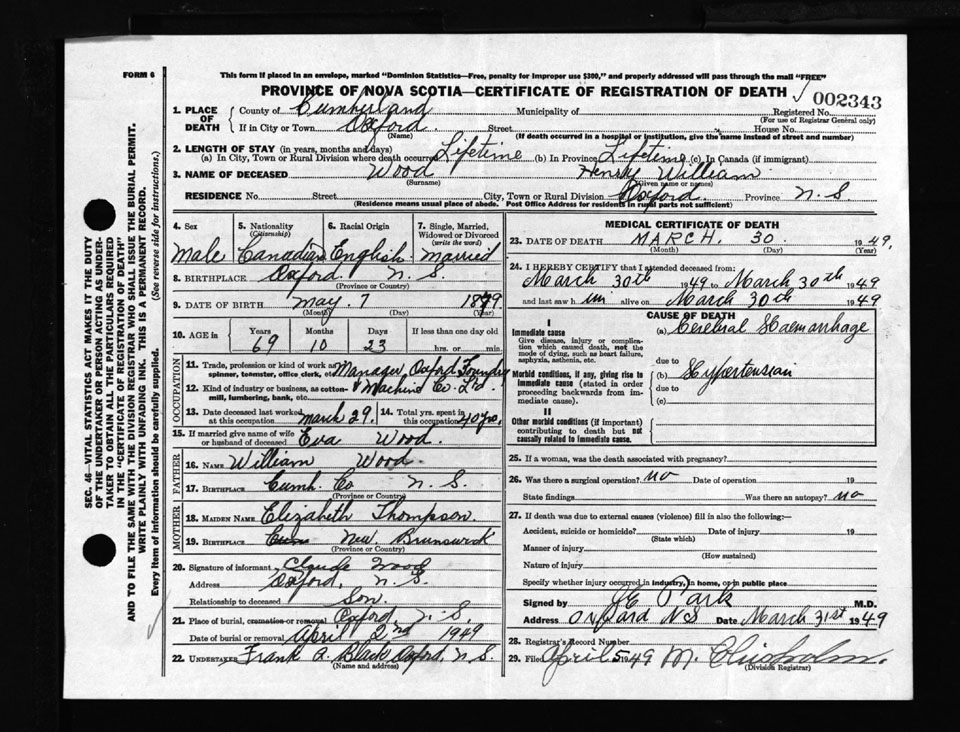 FORM 6
This form if placed in an envelope, marked "Dominion Statistics—Free, penalty for improper use $300," and properly addressed will pass through the mail "FREE"
PROVINCE OF NOVA SCOTIA—CERTIFICATE OF REGISTRATION OF DEATH
002343
1. PLACE OF DEATH County of Cumberland Municipality of Registered No.
(For use of Registrar General only)
If in City or Town Oxford. Street House No.
(Name) (If death occurred in a hospital or institution, give the name instead of street and number)
2. LENGTH OF STAY (in years, months and days)
(a) In City, Town or Rural Division where death occurred Lifetime (b) In Province Lifetime (c) In Canada (if immigrant)
3. NAME OF DECEASED Wood Henry William
(Surname) (Given name or names)
RESIDENCE No. Street City, Town or Rural Division Oxford. Province N.S.
(Residence means usual place of abode. Post Office Address for residents in rural parts not sufficient)
4. Sex 5. Nationality (Citizenship) 6. Racial Origin 7. Single, Married, Widowed or Divorced (write the word)
Male Canadian English. Married
8. BIRTHPLACE Oxford. N.S.
(Province or Country)
9. DATE OF BIRTH May. 7 1879
(Month) (Day) (Year)
10. AGE in Years Months Days If less than one day old
69 10 23 hrs. or min.
OCCUPATION
11. Trade, profession or kind of work as spinner, teamster, office clerk, etc. Manager Oxford Foundry
12. Kind of industry or business, as cotton-mill, lumbering, bank, etc. & Machine Co. Ltd.
13. Date deceased last worked at this occupation March 29. 14. Total yrs. spent in this occupation 40 yrs.
15. If married give name of wife or husband of deceased Eva Wood.
FATHER
16. NAME William Wood.
17. BIRTHPLACE Cumb. Co N.S.
(Province or Country)
MOTHER
18. MAIDEN NAME Elizabeth Thompson.
19. BIRTHPLACE New Brunswick
(Province or Country)
20. Signature of informant Claude Wood
Address Oxford, N.S.
Relationship to deceased Son.
21. Place of burial, cremation or removal Oxford, N.S.
Date of burial or removal April 2nd 1949
22. UNDERTAKER Frank A. Black Oxford, N.S.
(Name and address)
MEDICAL CERTIFICATE OF DEATH
23. DATE OF DEATH MARCH. 30. 1949.
(Month) (Day)
24. I HEREBY CERTIFY that I attended deceased from:
March 30th 1949 to March 30th 1949
and last saw h im alive on March 30th 1949
CAUSE OF DEATH
I
Immediate cause (a) Cerebral Haemorrhage
Give disease, injury or complication which caused death, not the mode of dying, such as heart failure, asphyxia, asthenia, etc.
due to
Morbid conditions, if any, giving rise to immediate cause (stated in order proceeding backwards from immediate cause). (b) Hypertension
due to
(c)
II
Other morbid conditions (if important) contributing to death but not causally related to immediate cause.
25. If a woman, was the death associated with pregnancy?
26. Was there a surgical operation? no Date of operation 19
State findings Was there an autopsy? no
27. If death was due to external causes (violence) fill in also the following:—
Accident, suicide or homicide? Date of injury 19
(State which)
Manner of injury
(How sustained)
Nature of injury
Specify whether injury occurred in industry, in home, or in public place
Signed by J E Park M.D.
Address Oxford NS Date March 31st 1949
28. Registrar's Record Number
29. Filed April 5 1949 M. Chisholm.
(Division Registrar)
SEC. 46—VITAL STATISTICS ACT MAKES IT THE DUTY
OF THE UNDERTAKER OR PERSON ACTING AS UNDER-
TAKER TO OBTAIN ALL THE PARTICULARS REQUIRED
IN THE "CERTIFICATE OF REGISTRATION OF DEATH"
AND TO FILE THE SAME WITH THE DIVISION REGISTRAR WHO SHALL ISSUE THE BURIAL PERMIT.
WRITE PLAINLY WITH UNFADING INK. THIS IS A PERMANENT RECORD.
Every item of information should be carefully supplied. (See reverse side for instructions.)